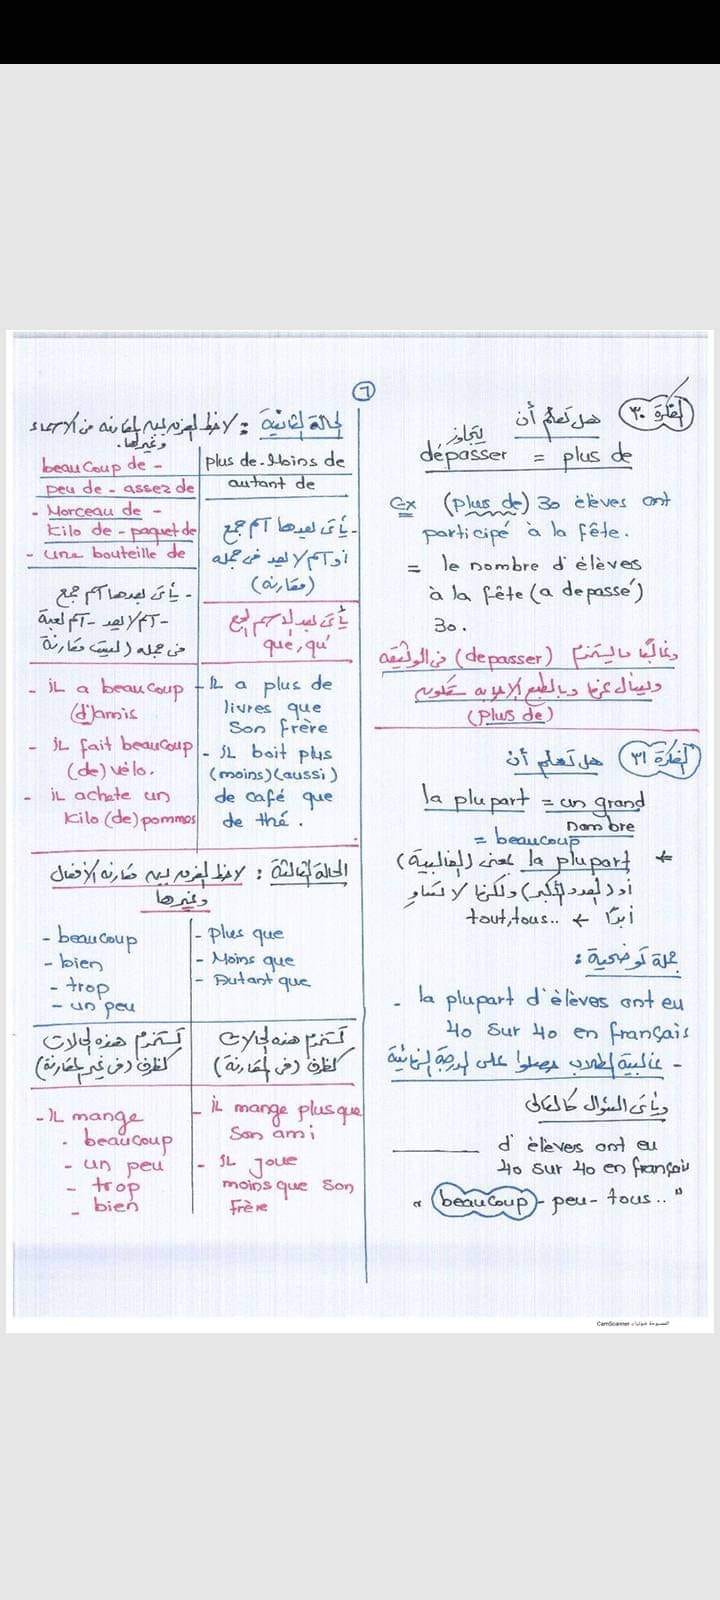 ٦
الفكرة ٣٠ هل تعلم أن
يتجاوز
dépasser = plus de
Ex (plus de) 30 élèves ont
participé à la fête.
= le nombre d'élèves
à la fête (a depassé)
30.
وغالبًا ما يستخدم (depasser) في الوثيقة
ويسأل عنها وبالطبع الإجابة ستكون
(plus de)
الفكرة ٣١ هل تعلم أن
la plupart = un grand
nombre
= beaucoup
← la plupart بمعنى (الغالبية)
أو (العدد الأكبر) ولكنها لا تساوي
أبدًا ← tout, tous..
جملة توضيحية :
- la plupart d'élèves ont eu
40 sur 40 en français
- غالبية الطلاب حصلوا على الدرجة النهائية
ويأتى السؤال كالتالى
________ d'élèves ont eu
40 sur 40 en français
« beaucoup - peu - tous.. "
الحالة الثانية : لاحظ الفرق بين المقارنة من الأسماء
وغيرها.
plus de - Moins de
autant de
- يأتى بعدها اسم جمع
أو اسم لا يعد فى جملة
(مقارنة)
يأتى بعد الاسم الجمع
que, qu'
- IL a plus de
livres que
son frère
- IL boit plus
(moins) (aussi)
de café que
de thé.
beaucoup de -
peu de - assez de
- Morceau de -
kilo de - paquet de
- une bouteille de
- يأتى بعدها اسم جمع
- اسم لا يعد - اسم لعبة
فى جملة (ليست مقارنة
- iL a beaucoup
(d')amis
- iL fait beaucoup
(de) vélo.
- iL achete un
kilo (de) pommes
الحالة الثالثة : لاحظ الفرق بين مقارنة الأفعال
وغيرها
- plus que
- Moins que
- Autant que
تستخدم هذه الحالات
كظرف (فى المقارنة)
- iL mange plus que
son ami
- IL joue
moins que son
frère
- beaucoup
- bien
- trop
- un peu
تستخدم هذه الحالات
كظرف (فى غير المقارنة)
- IL mange
- beaucoup
- un peu
- trop
- bien
CamScanner الممسوحة ضوئيا بـ